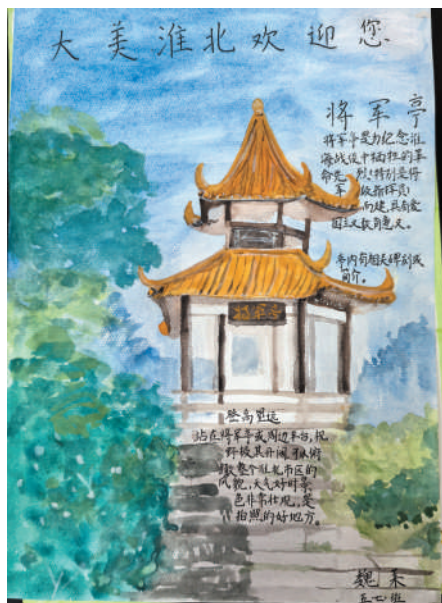 大美淮北欢迎您
将军亭
将军亭是为纪念淮
海战役中牺牲的革
命先烈(特别是将
军级指挥员)
而建,具有爱
国主义教育意义。
亭内有相关碑刻或
简介。
亭军将
登高望远
站在将军亭或周边平台,视
野极其开阔,可以俯
瞰整个淮北市区的
风貌,天气好时景
色非常壮观,是
拍照的好地方。
魏
五(七)班